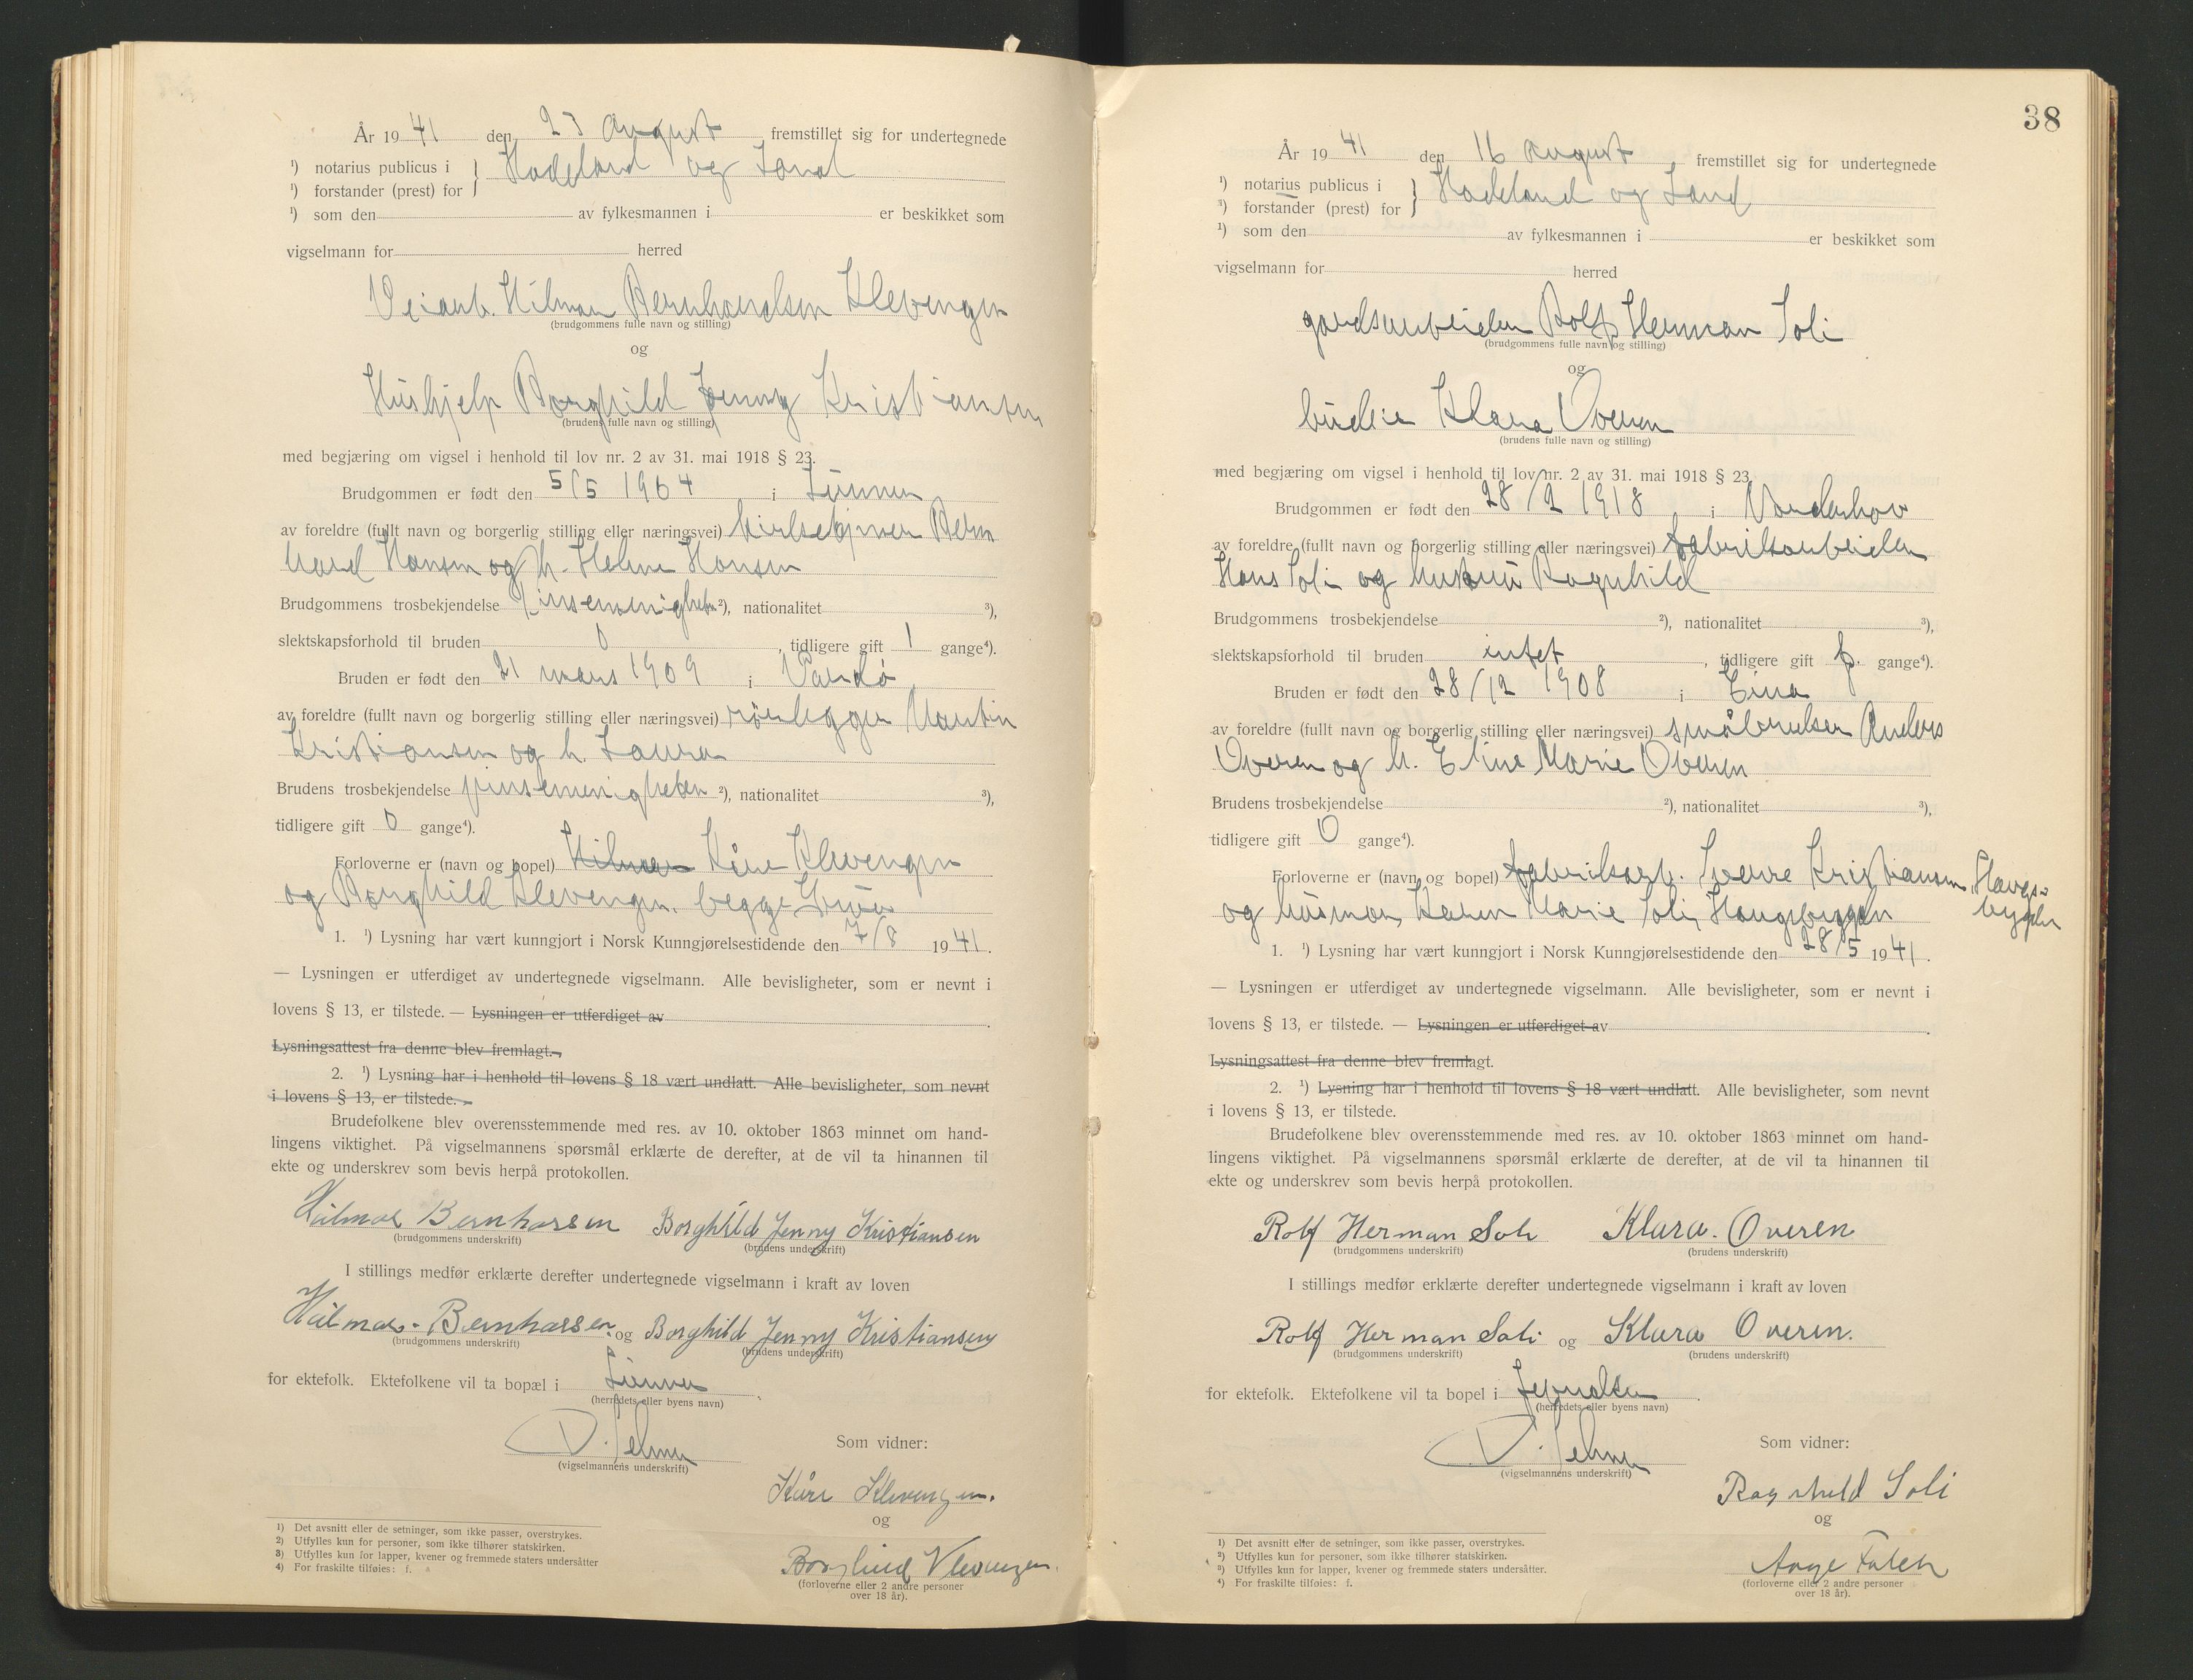 År 1941 den 23 august fremstillet sig for undertegnede
¹) notarius publicus i } Hadeland og Land
¹) forstander (prest) for
¹) som den av fylkesmannen i er beskikket som
vigselmann for herred
Veiarb. Hilmar Bernhardsen Klevengen
(brudgommens fulle navn og stilling)
og
Hushjelp Borghild Jenny Kristiansen
(brudens fulle navn og stilling)
med begjæring om vigsel i henhold til lov nr. 2 av 31. mai 1918 § 23.
Brudgommen er født den 5/5 1904 i Lunner
av foreldre (fullt navn og borgerlig stilling eller næringsvei) kirketjener Bern
hard Hansen og h. Helene Hansen
Brudgommens trosbekjendelse pinsemenigheten ²), nationalitet ³),
slektskapsforhold til bruden 0, tidligere gift 1 gange⁴).
Bruden er født den 21 mars 1909 i Vardø
av foreldre (fullt navn og borgerlig stilling eller næringsvei) rørlegger Martin
Kristiansen og h. Laura
Brudens trosbekjendelse pinsemenigheten ²), nationalitet ³),
tidligere gift 0 gange⁴).
Forloverne er (navn og bopel) Hilmar Kåre Klevengen
og Borghild Klevengen, begge Grua
1. ¹) Lysning har vært kunngjort i Norsk Kunngjørelsestidende den 7/8 1941.
— Lysningen er utferdiget av undertegnede vigselmann. Alle bevisligheter, som er nevnt i
lovens § 13, er tilstede. — Lysningen er utferdiget av .
Lysningsattest fra denne blev fremlagt.
2. ¹) Lysning har i henhold til lovens § 18 vært undlatt. Alle bevisligheter, som nevnt
i lovens § 13, er tilstede.
Brudefolkene blev overensstemmende med res. av 10. oktober 1863 minnet om hand-
lingens viktighet. På vigselmannens spørsmål erklærte de derefter, at de vil ta hinannen til
ekte og underskrev som bevis herpå protokollen.
Hilmar Bernharsen Borghild Jenny Kristiansen
(brudgommens underskrift) (brudens underskrift)
I stillings medfør erklærte derefter undertegnede vigselmann i kraft av loven
Hilmar Bernharsen og Borghild Jenny Kristiansen
(brudgommens underskrift) (brudens underskrift)
for ektefolk. Ektefolkene vil ta bopæl i Lunner
(herredets eller byens navn)
Som vidner:
(vigselmannens underskrift)
Kåre Klevengen.
og
Borghild Klevengen.
(forloverne eller 2 andre personer
over 18 år).
1) Det avsnitt eller de setninger, som ikke passer, overstrykes.
2) Utfylles kun for personer, som ikke tilhører statskirken.
3) Utfylles kun for lapper, kvener og fremmede staters undersåtter
4) For fraskilte tilføies: f.
38
År 1941 den 16 august, fremstillet sig for undertegnede
¹) notarius publicus i } Hadeland og Land
³) forstander (prest) for
¹) som den av fylkesmannen i er beskikket som
vigselmann for herred
gardsarbeider Rolf Herman Soli
(brudgommens fulle navn og stilling)
og
budeie Klara Overen
(brudens fulle navn og stilling)
med begjæring om vigsel i henhold til lov nr. 2 av 31. mai 1918 § 23.
Brudgommen er født den 28/2 1918 i Norderhov
av foreldre (fullt navn og borgerlig stilling eller næringsvei) fabrikkarbeider
Hans Soli og hustru Ragnhild
Brudgommens trosbekjendelse ²), nationalitet ³),
slektskapsforhold til bruden intet, tidligere gift gange⁴).
Bruden er født den 28/12 1908 i Eina
av foreldre (fullt navn og borgerlig stilling eller næringsvei) småbruker Anders
Overen og h. Eline Marie Overen
Brudens trosbekjendelse ²), nationalitet ³),
tidligere gift 0 gange⁴).
Forloverne er (navn og bopel) fabrikkarb. Sverre Kristiansen, Hauges-
bygden
og husmor Karen Marie Soli, Haugsbygden
1. ¹) Lysning har vært kunngjort i Norsk Kunngjørelsestidende den 28/5 1941.
— Lysningen er utferdiget av undertegnede vigselmann. Alle bevisligheter, som er nevnt i
lovens § 13, er tilstede. — Lysningen er utferdiget av .
Lysningsattest fra denne blev fremlagt.
2. ¹) Lysning har i henhold til lovens § 18 vært undlatt. Alle bevisligheter, som nevnt
i lovens § 13, er tilstede.
Brudefolkene blev overensstemmende med res. av 10. oktober 1863 minnet om hand-
lingens viktighet. På vigselmannens spørsmål erklærte de derefter, at de vil ta hinannen til
ekte og underskrev som bevis herpå protokollen.
Rolf Herman Soli Klara. Overen
(brudgommens underskrift) (brudens underskrift)
I stillings medfør erklærte derefter undertegnede vigselmann i kraft av loven
Rolf Herman Soli og Klara Overen.
(brudgommens underskrift) (brudens underskrift)
for ektefolk. Ektefolkene vil ta bopel i Jevnaker.
(herredets eller byens navn)
Som vidner:
(vigselmannens underskrift)
Ragnhild Soli
og
Aage Falch
(forloverne eller 2 andre personer
over 18 år).
¹) Det avsnitt eller de setninger, som ikke passer, overstrykes.
²) Utfylles kun for personer, som ikke tilhører statskirken.
³) Utfylles kun for lapper, kvener og fremmede staters undersåtter.
⁴) For fraskilte tilføies: f.